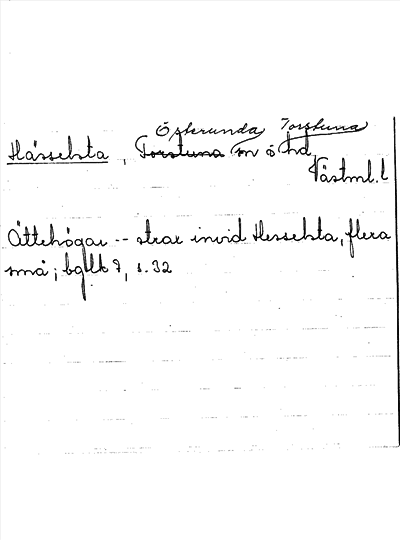 Österunda Torstuna
Hässelsta, Torstuna sn o hd,
Västml. l
Ättehögar -- strax invid Hesselsta, flera
små; bgllk 7, s. 32